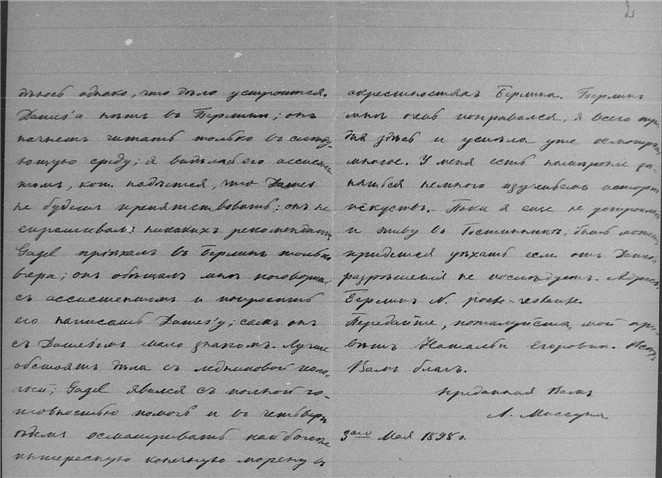 дѣюсь однако, что дѣло устроится.
Dames'а нѣтъ въ Берлинѣ; онъ
начнетъ читать только въ слѣду-
ющую среду; я видѣлась съ его ассистен-
томъ, кот. надѣется, что Dames
не будетъ препятствовать; онъ не
спрашивалъ никакихъ рекомендацій.
Gagel пріѣхалъ въ Берлинъ только
вчера; онъ обѣщалъ мнѣ поговорить
съ ассистентомъ и попросить
его написать Dames'у; самъ онъ
съ Dames'омъ мало знакомъ. Лучше
обстоятъ дѣла съ ледниковой
Gagel явился съ полной го-
товностью помочь и въ четвергъ
ѣдемъ осматривать наиболѣе
интересную конечную морену въ
окрестностяхъ Берлина. Берлинъ
мнѣ понравился, я всего три
дня здѣсь и успѣла уже осмотрѣть
многое. У меня есть намѣреніе за-
няться немного изученіемъ исторіи
искусствъ. Пока я еще не устроилась
и живу въ гостинницѣ, быть можетъ
придется уѣхать если отъ Dames
разрѣшенія не послѣдуетъ. Адресъ:
Берлинъ N. poste-restante.
Передайте, пожалуйста, мой при-
вѣтъ Натальѣ Егоровнѣ. Всѣхъ
Вамъ благъ.
преданная Вамъ
3его Мая 1898 г.